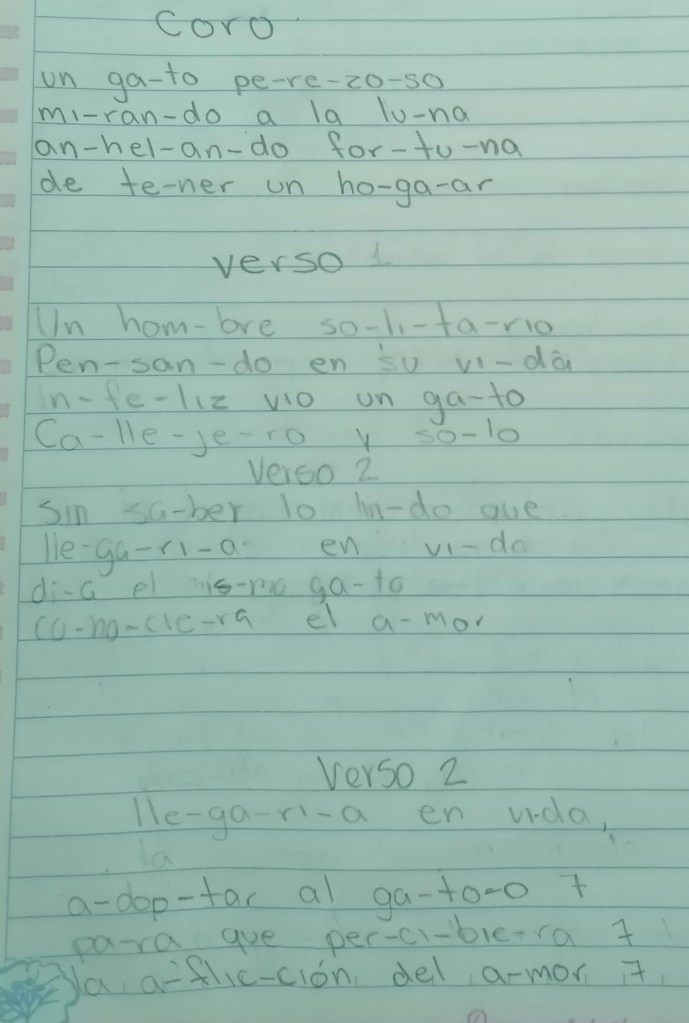 Coro
un ga-to pe-re-zo-so
mi-ran-do a la lu-na
an-hel-an-do for-tu-na
de te-ner un ho-ga-ar
verso 1
Un hom-bre so-li-ta-rio
Pen-san-do en su vi-da
in-fe-liz vio un ga-to
Ca-lle-je-ro y so-lo
Verso 2
Sin sa-ber lo lin-do que
lle-ga-ri-a en vi-da
di-a el mis-mo ga-to
co-no-cie-ra el a-mor
Verso 2
lle-ga-ri-a en vi-da,
ta
a-dop-tar al ga-to-o 7
pa-ra que per-ci-bie-ra 7
la a-flic-ción del a-mor 7